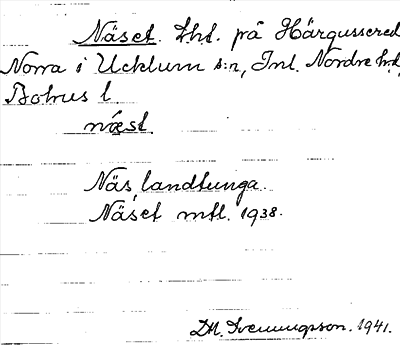 Näset. tht. på Härgussered
Norra i Ucklum s:n, Inl. Nordre hd,
Bohus l.
næst.
Näs, landtunga.
Näset mtl. 1938.
D.M. Svenungsson. 1941.